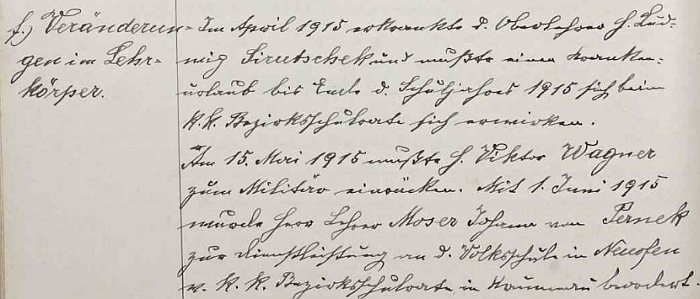 f.) Veränderun- Im April 1915 erkrankte d. Oberlehrer H. Lud-
gen im Lehr- wig Sirutschek und mußte einen Kranken-
körper. urlaub bis Ende d. Schuljahres 1915 sich beim
k.k. Bezirksschulrate sich erwirken.
Am 15. Mai 1915 mußte H. Viktor Wagner
zum Militär einrücken. Mit 1. Juni 1915
wurde Herr Lehrer Moser Johann von Pernek
zur Dienstleistung an d. Volksschule in Neuofen
v. k. k. Bezirksschulrate in Krummau beordert.